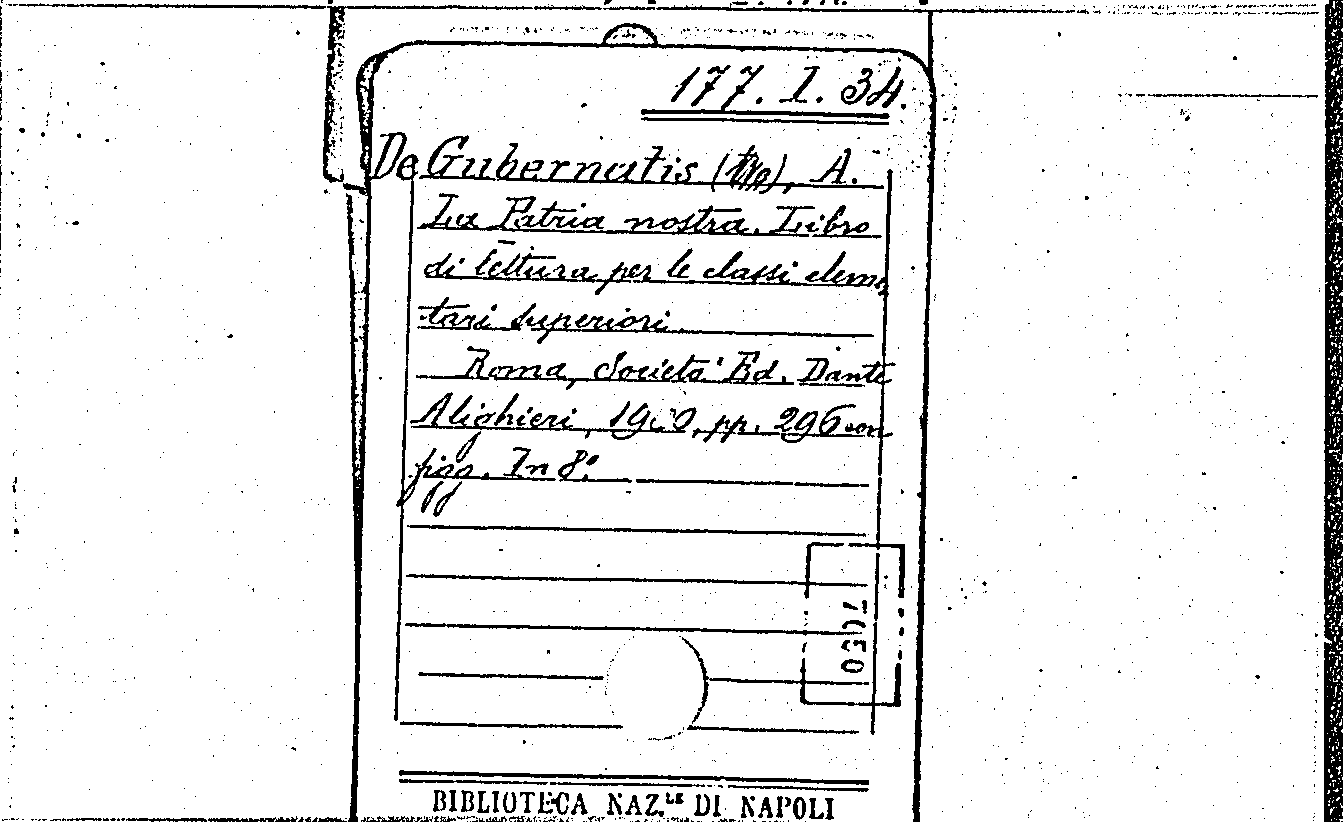 177. I. 34.
De Gubernatis, A.
La Patria nostra. Libro
di lettura per le classi elemen
tari superiori
Roma, Società Ed. Dante
Alighieri, 1900, pp. 296 con
figg. In 8º
BIBLIOTECA NAZ.LE DI NAPOLI